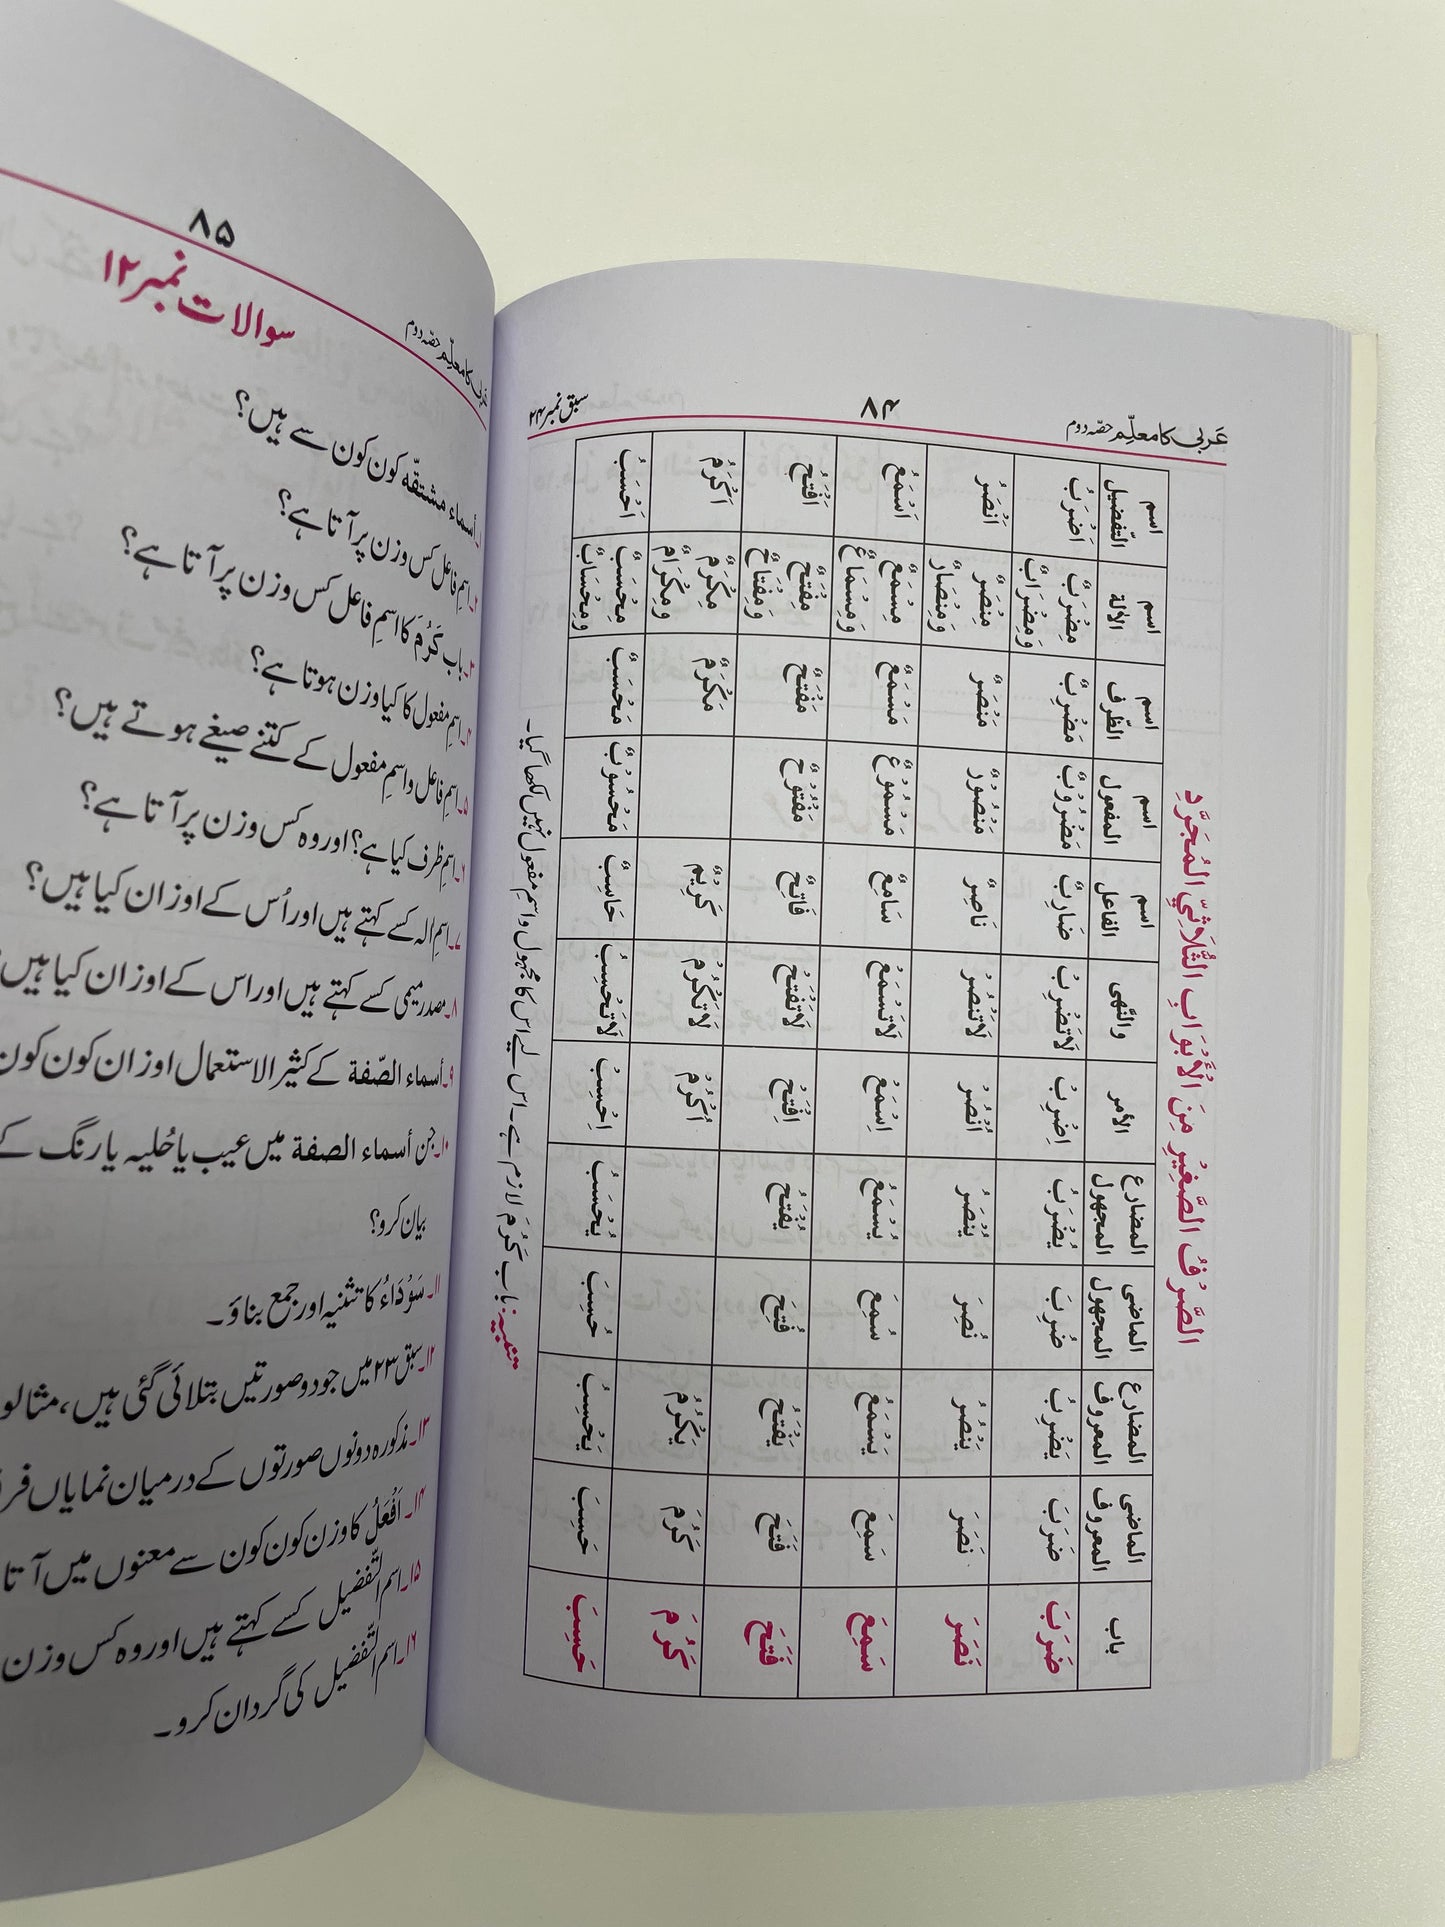 عَربی کا معلِّم حصّہ دوم ۸۴ سبق نمبر ۲۴
الصَّرْفُ الصَّغِيْرُ مِنَ الْأَبْوَابِ الثُّلَاثِيِّ الْمُجَرَّدِ
باب الماضی المعروف المضارع المعروف الماضی المجهول المضارع المجهول الأمر والنّهی اسم الفاعل اسم المفعول اسم الظّرف اسم الألة اسم التّفضیل
ضَرَبَ ضَرَبَ يَضْرِبُ ضُرِبَ يُضْرَبُ اِضْرِبْ لَاتَضْرِبْ ضَارِبٌ مَضْرُوْبٌ مَضْرِبٌ مِضْرَبٌ وَمِضْرَابٌ اَضْرَبُ
نَصَرَ نَصَرَ يَنْصُرُ نُصِرَ يُنْصَرُ اُنْصُرْ لَاتَنْصُرْ نَاصِرٌ مَنْصُوْرٌ مَنْصَرٌ مِنْصَرٌ وَمِنْصَارٌ اَنْصَرُ
سَمِعَ سَمِعَ يَسْمَعُ سُمِعَ يُسْمَعُ اِسْمَعْ لَاتَسْمَعْ سَامِعٌ مَسْمُوْعٌ مَسْمَعٌ مِسْمَعٌ وَمِسْمَاعٌ اَسْمَعُ
فَتَحَ فَتَحَ يَفْتَحُ فُتِحَ يُفْتَحُ اِفْتَحْ لَاتَفْتَحْ فَاتِحٌ مَفْتُوْحٌ مَفْتَحٌ مِفْتَحٌ وَمِفْتَاحٌ اَفْتَحُ
كَرُمَ كَرُمَ يَكْرُمُ اُكْرُمْ لَاتَكْرُمْ كَرِيْمٌ مَكْرَمٌ مِكْرَمٌ وَمِكْرَامٌ اَكْرَمُ
حَسِبَ حَسِبَ يَحْسِبُ حُسِبَ يُحْسَبُ اِحْسِبْ لَاتَحْسِبْ حَاسِبٌ مَحْسُوْبٌ مَحْسَبٌ مِحْسَبٌ وَمِحْسَابٌ اَحْسَبُ
تنبیہ: باب کَرُمَ لازم ہے۔ اس لیے اس کا مجہول و اسمِ مفعول نہیں لکھا گیا۔
عَربی کا معلِّم حصّہ دوم ۸۵
سوالات نمبر ۱۲
۱۔ أسماء مشتقّہ کون کون سے ہیں؟
۲۔ اسمِ فاعل کس وزن پر آتا ہے؟
۳۔ باب کَرُمَ کا اسمِ فاعل کس وزن پر آتا ہے؟
۴۔ اسمِ مفعول کا کیا وزن ہوتا ہے؟
۵۔ اسمِ فاعل و اسمِ مفعول کے کتنے صیغے ہوتے ہیں؟
۶۔ اسمِ ظرف کیا ہے؟ اور وہ کس وزن پر آتا ہے؟
۷۔ اسمِ الہ کسے کہتے ہیں اور اُس کے اوزان کیا ہیں؟
۸۔ مصدر میمی کسے کہتے ہیں اور اس کے اوزان کیا ہیں؟
۹۔ أسماء الصّفة کے کثیر الاستعمال اوزان کون کون
۱۰۔ جن أسماء الصفة میں عیب یا حُلیہ یا رنگ کے
بیان کرو؟
۱۱۔ سَوْدَاءُ کا تثنیہ اور جمع بناؤ۔
۱۲۔ سبق ۲۳ میں جو دو صورتیں بتلائی گئی ہیں،
۱۳۔ مذکورہ دونوں صورتوں کے درمیان نمایاں
۱۴۔ اَفْعَلُ کا وزن کون کون سے معنوں میں آتا
۱۵۔ اسم التّفضیل کسے کہتے ہیں اور وہ کس وزن
۱۶۔ اسم التّفضیل کی گردان کرو۔